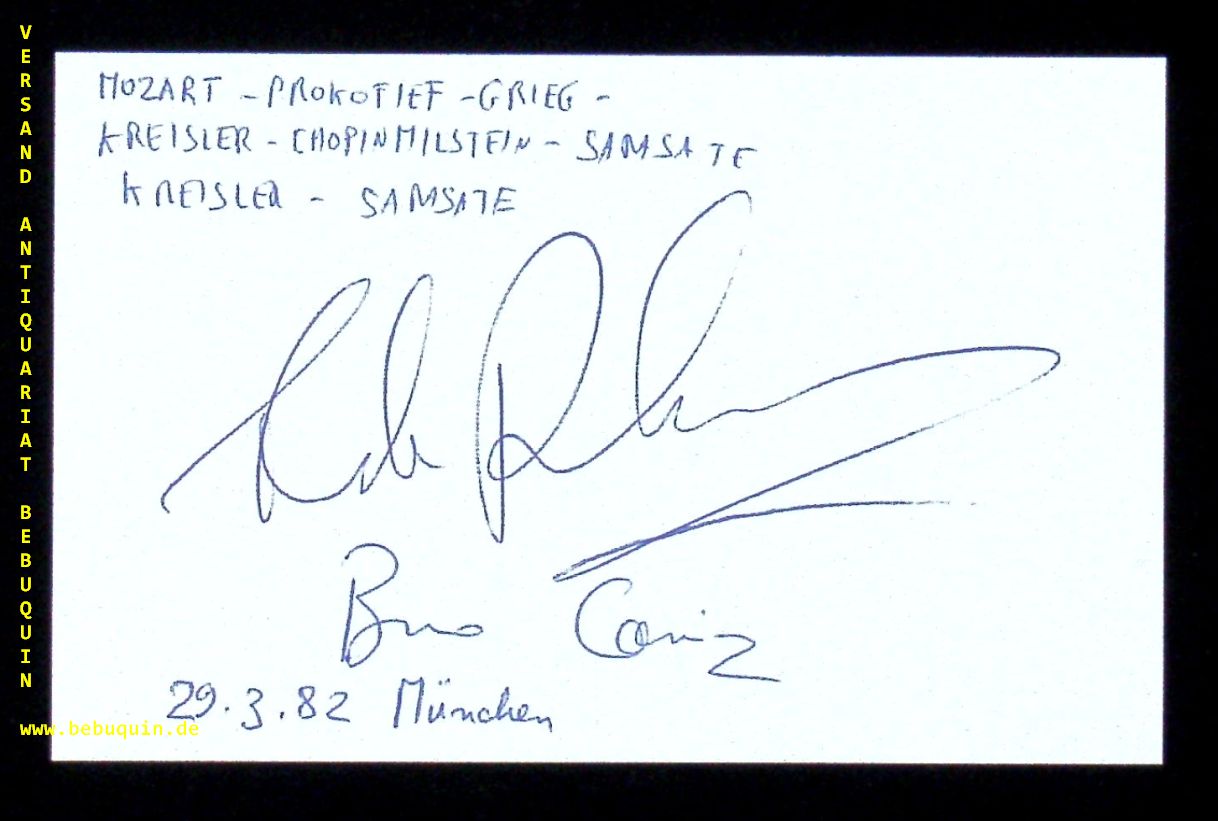 MOZART - PROKOFIEF - GRIEG -
KREISLER - CHOPINMILSTEIN - SAMSATE
KREISLER - SAMSATE
Bruno Canino
29.3.82 München
VERSAND ANTIQUARIAT BEBUQUIN
www.bebuquin.de